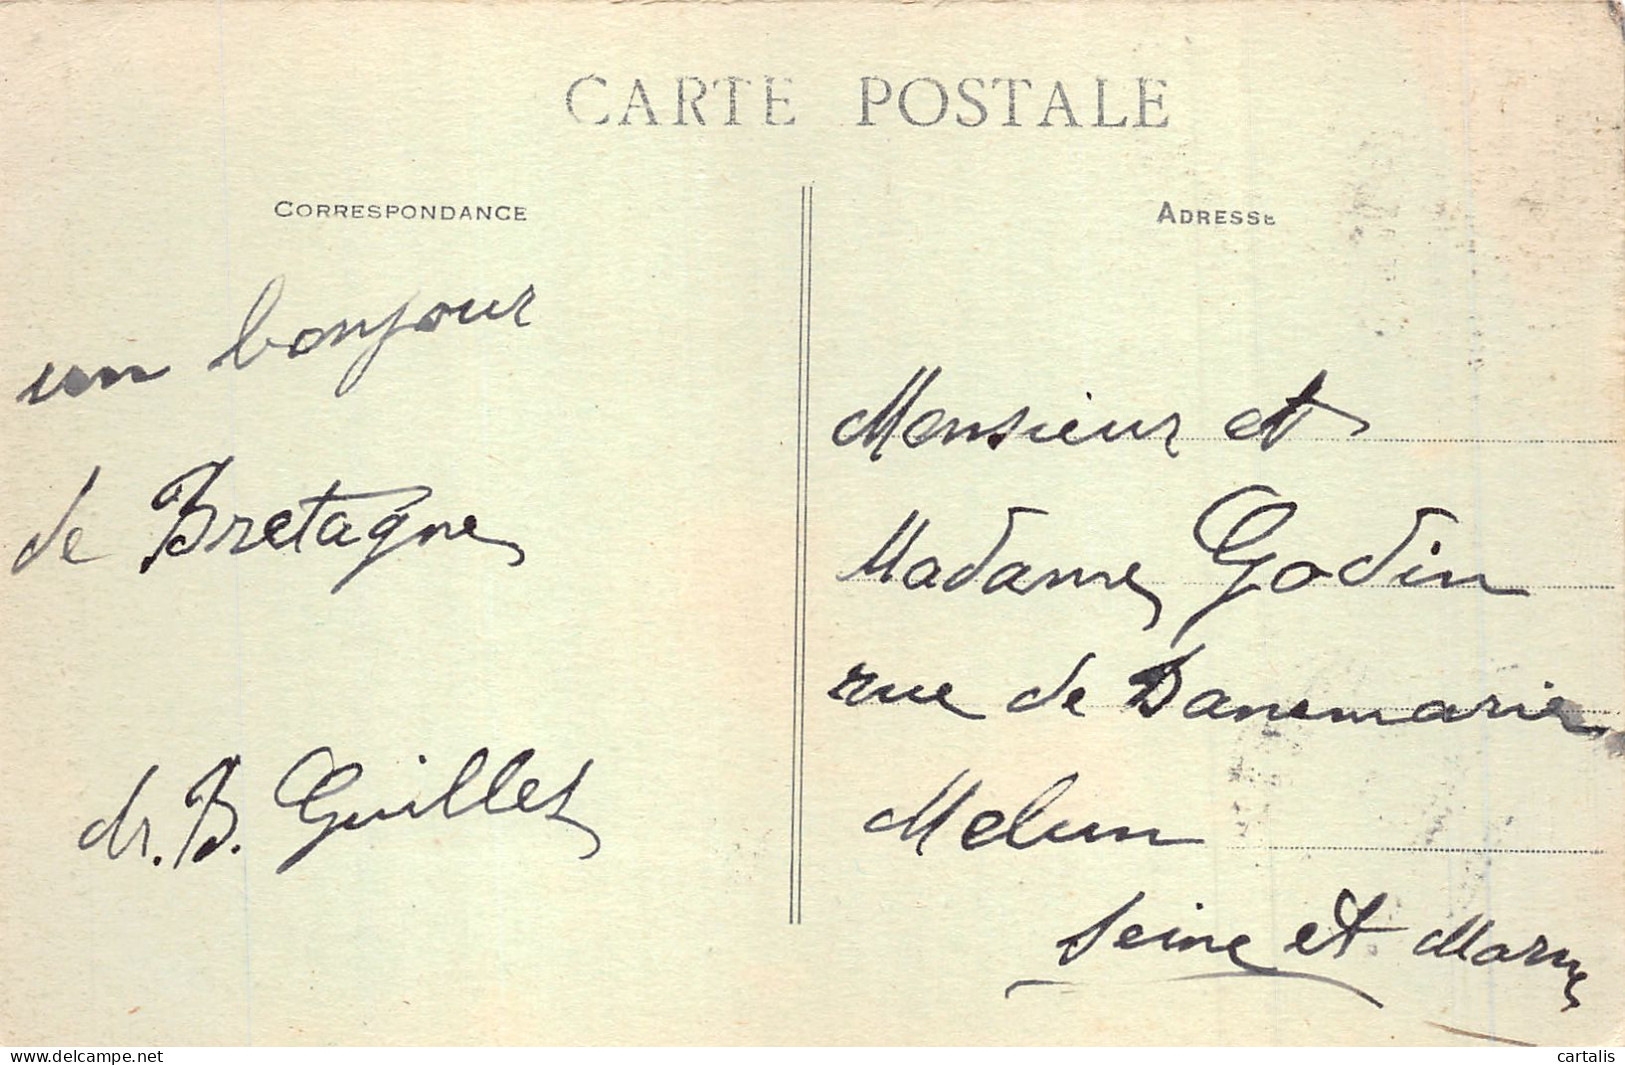 CARTE POSTALE
CORRESPONDANCE
un bonjour
de Bretagne
dr. B. Guillet
ADRESSE
Monsieur et
Madame Godin
rue de Danemarie
Melun
Seine et Marne
www.delcampe.net
cartalis